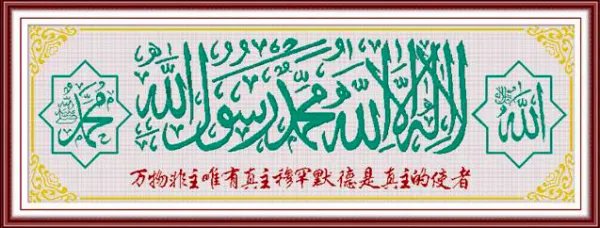 لا إله إلا الله محمد رسول الله
الله
محمد
万物非主唯有真主穆罕默德是真主的使者